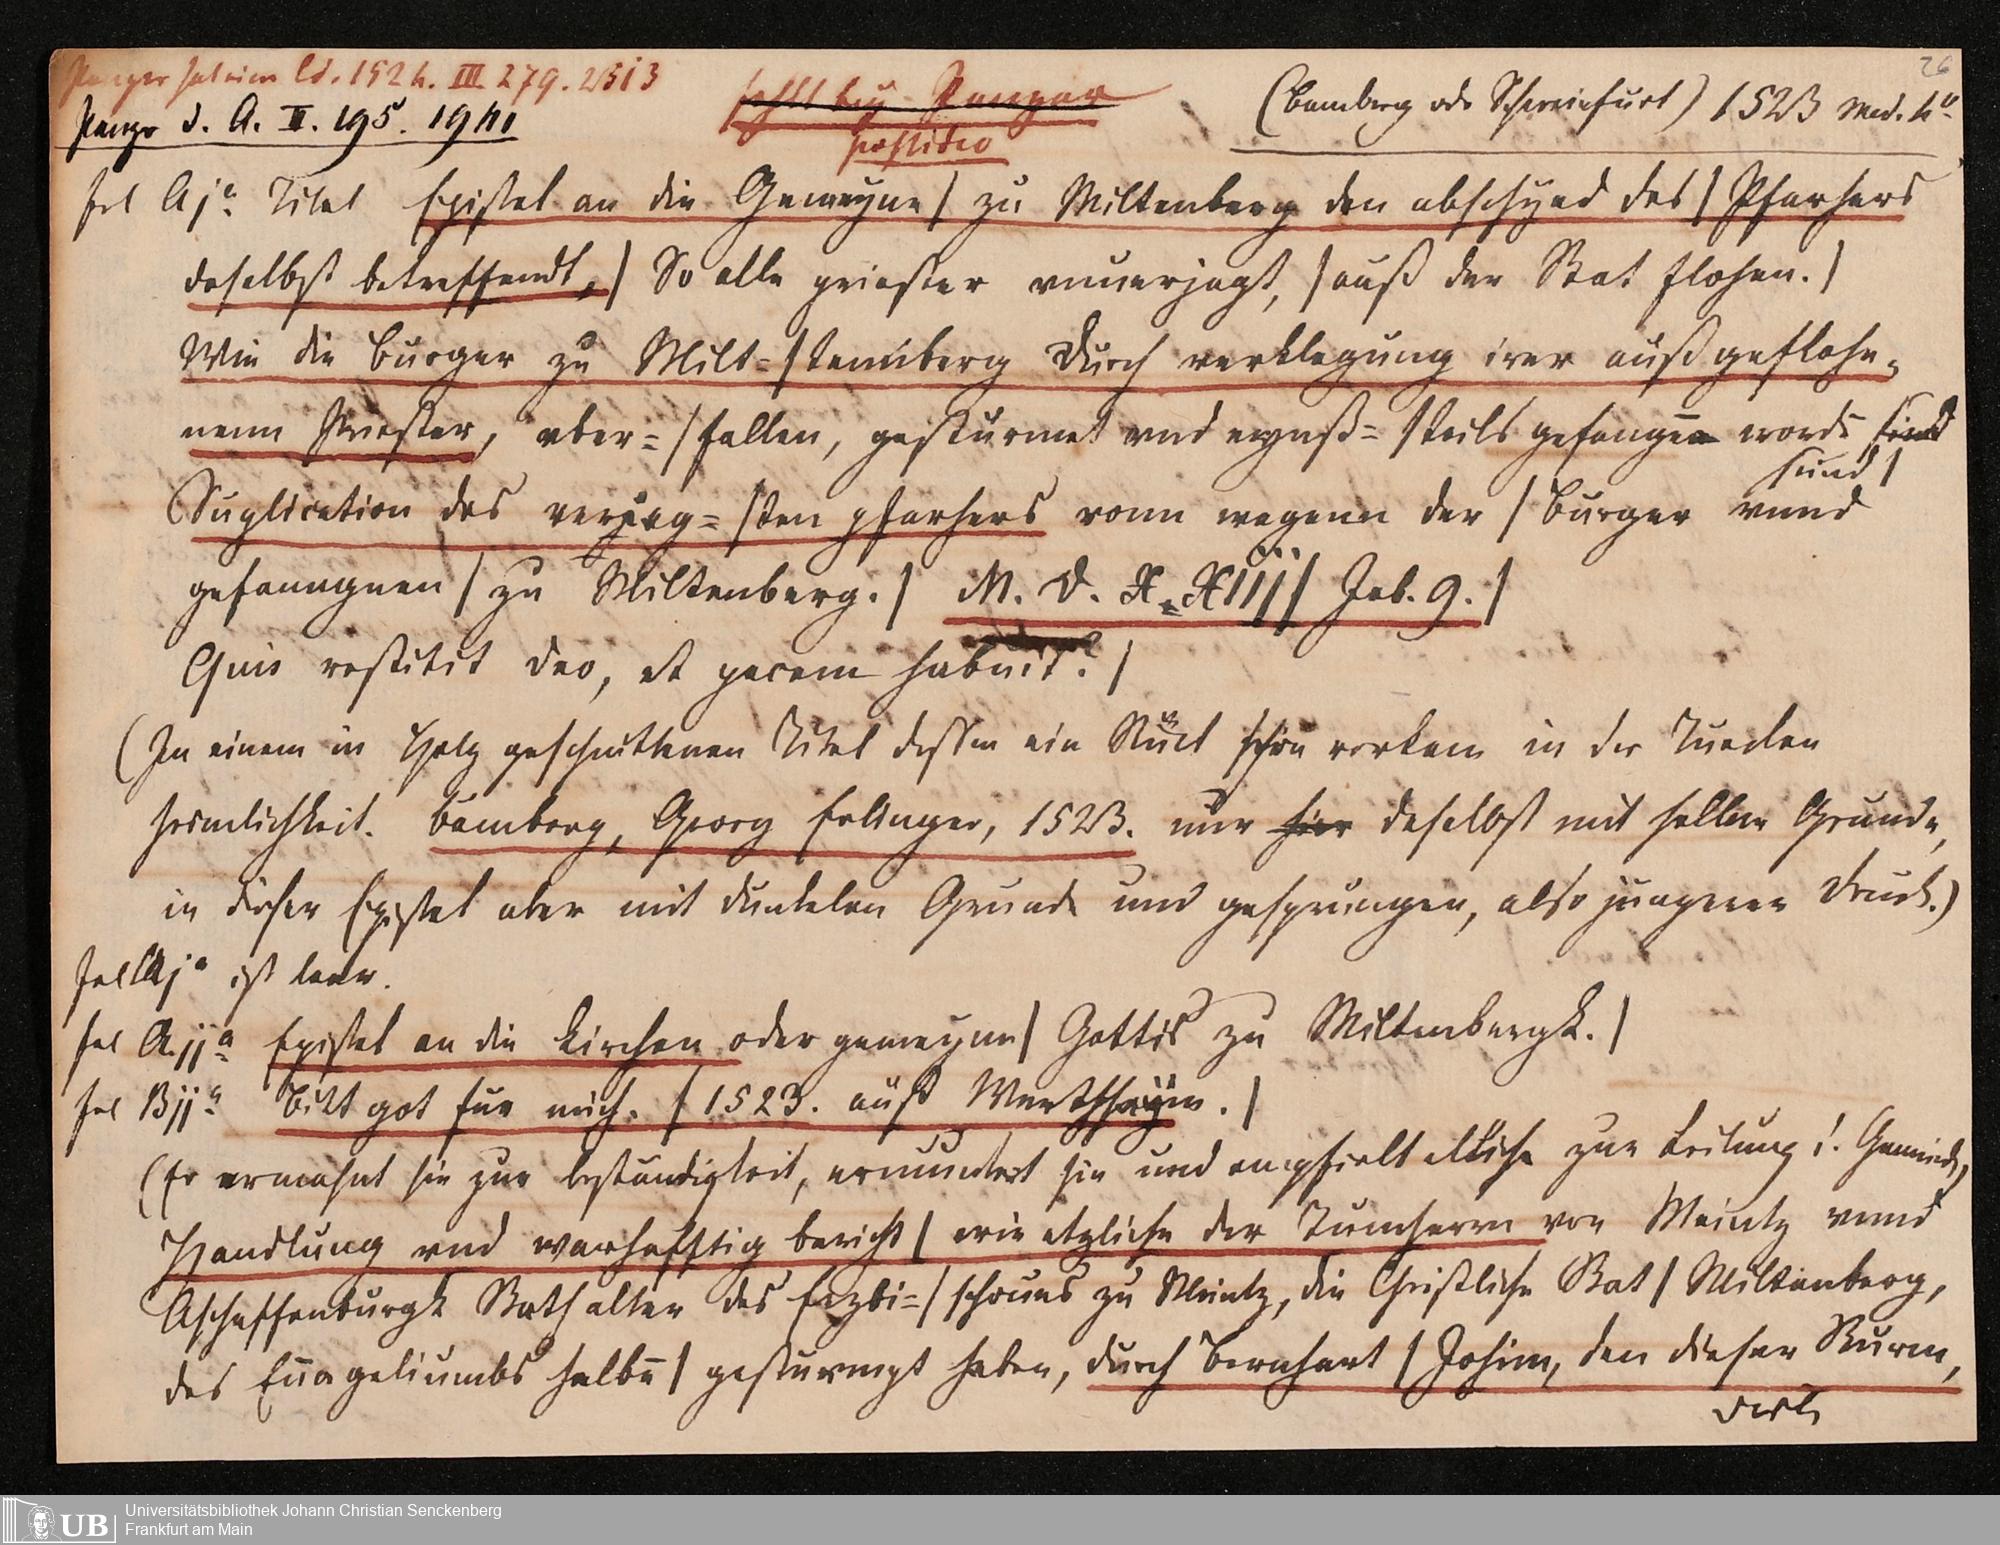 Panzer hat eine Ed. 1524. III. 279. 2313
Panzr d. A. II. 195. 1941
fehlt bey Panzer
(Bamberg odr Schweinfurt) 1523 Med. 4o
26
fol Aja Titel Epistel an die Gemeyne | zu Miltenberg den abschyed des | Pfarhers
daselbst betreffendt, | So alle priester vnuerjagt, | auß der Stat flohen. |
Wie die burger zu Milt= | tennberg durch verklegung irer außgeflohe-
nenn Priester, vber= | fallen, gesturmet vnd eynß= | teils gefangen worde
sind |
Suplication des veryag= | ten pfarhers vonn wegenn der | burger vnnd
gefanngnen | zu Miltenberg. | M. D. X.Xiij | Job. 9. |
Quis restitit deo, et pacem habuit? |
(In einem in Holz geschnittenen Titel dessen ein Stück schon vorkam in der
heimlichkeit. Bamberg, Georg Erlinger, 1523. nur hier daselbst mit hellem Grunde,
in dieser Epistel aber mit dunkelen Grunde und gesprungen, also jüngerer Druck.)
fol Aja ist leer.
fol Ajja Epistel an die kirchen oder gemeyne | Gottis zu Miltenbergk. |
fol Bjja Bitt got fur mich. | 1523. auß Werthheym. |
(Er ermahnt sie zur beständigkeit, ermuntert sie und empfielt etliche zur Leitung d. Gemeinde,
Handlung vnd warhafftig bericht | wie etzliche der Tumherrn von Meintz vnnd
Aschaffenburgk Stathalter des Erzbi= | schoues zu Meintz, die Christliche Stat | Miltenberg,
des Euageliumbs halbn | gesturmpt haben, durch Bernhart | Johim, den dieser Sturm,
Universitätsbibliothek Johann Christian Senckenberg
Frankfurt am Main
UB